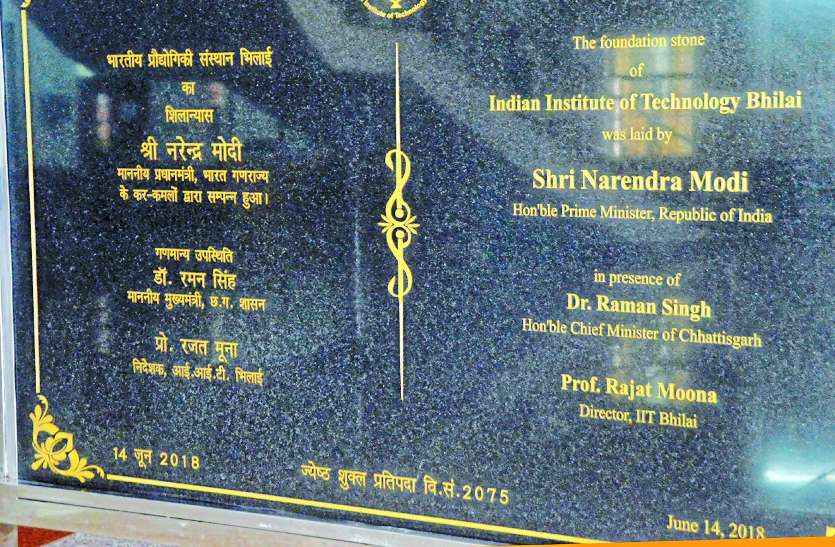 Institute of Technology
भारतीय प्रौद्योगिकी संस्थान भिलाई
का
शिलान्यास
श्री नरेन्द्र मोदी
माननीय प्रधानमंत्री, भारत गणराज्य
के कर-कमलों द्वारा सम्पन्न हुआ।
गणमान्य उपस्थिति
डॉ. रमन सिंह
माननीय मुख्यमंत्री, छ.ग. शासन
प्रो. रजत मूना
निदेशक, आई.आई.टी. भिलाई
14 जून 2018
ज्येष्ठ शुक्ल प्रतिपदा वि.सं.2075
The foundation stone
of
Indian Institute of Technology Bhilai
was laid by
Shri Narendra Modi
Hon'ble Prime Minister, Republic of India
in presence of
Dr. Raman Singh
Hon'ble Chief Minister of Chhattisgarh
Prof. Rajat Moona
Director, IIT Bhilai
June 14, 2018